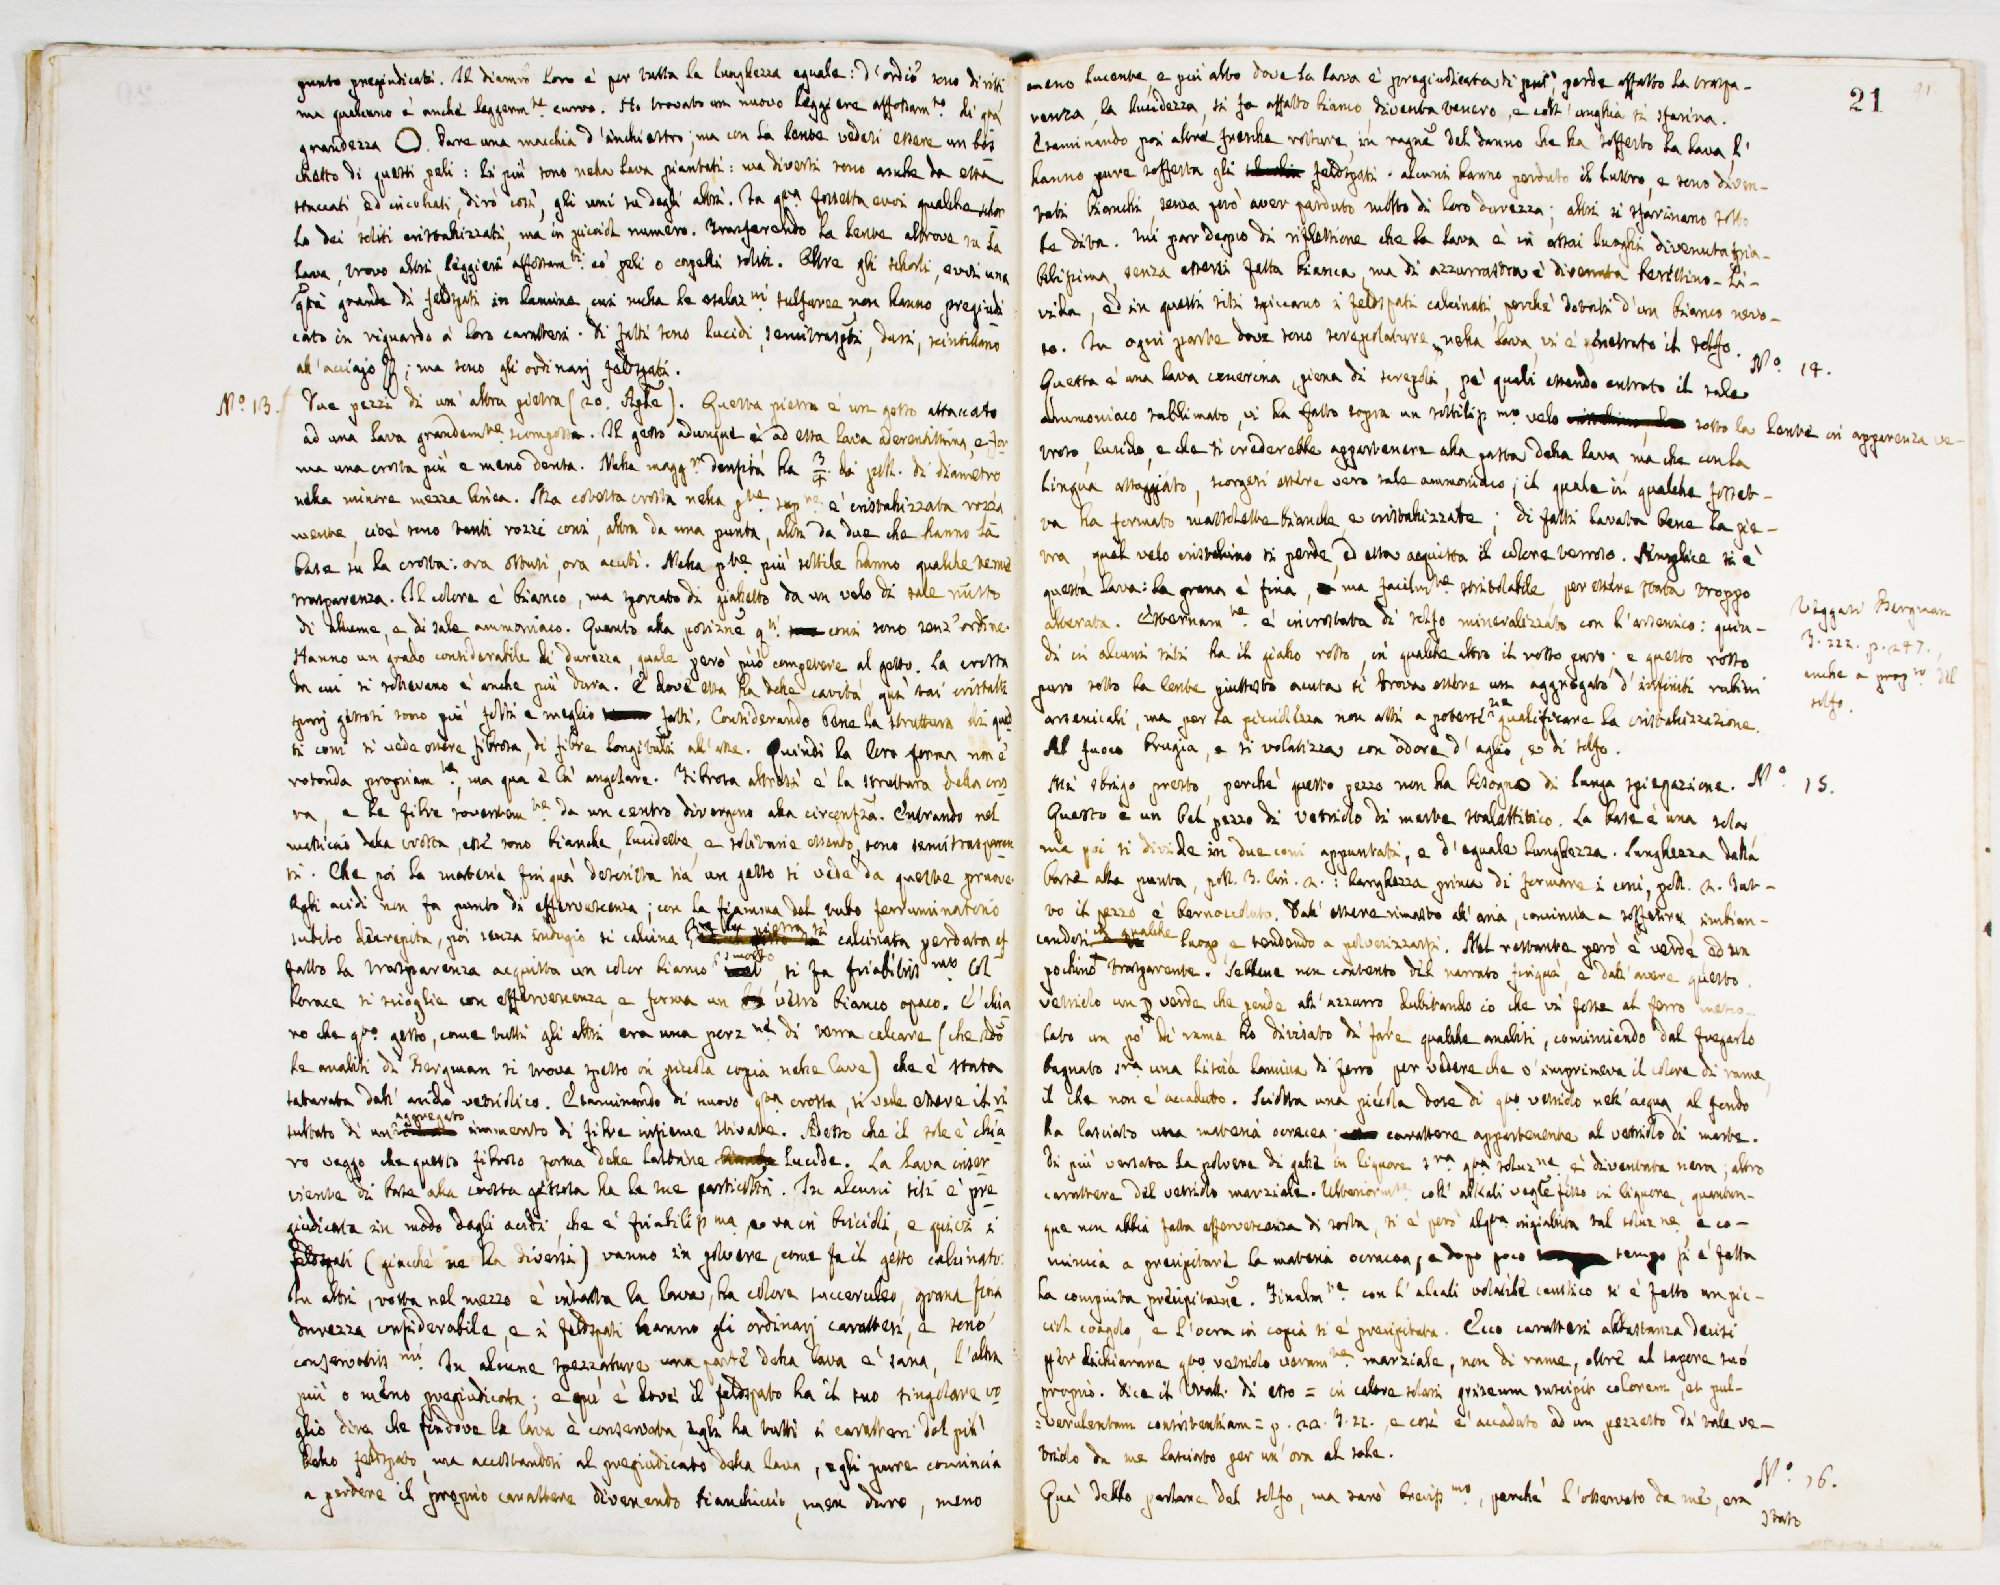 punto pregiudicati. Il diamrõ loro è per tutta la lunghezza eguale: d'ordiõ sono diritti
ma qualcuno è anche leggerm.te curvo. Ho trovato un nuovo leggiere affossam.to di q.ta
grandezza O. Pare una macchia d'inchiostro; ma con la lente vedesi essere un bos
chetto di questi peli: li più sono nella lava piantati: ma diversi sono anche da essa
staccati, ed incrociati, dirò così, gli uni su degli altri. In q.ta fossetta evvi qualche schor
lo dei soliti cristallizzati, ma in piccol numero. Trasferendo la lente altrove su la
lava, trovo altri leggieri affossam.ti co' peli o capelli soliti. Oltre gli schorli, evvi una
q.tà grande di feldspati in lamine, cui nulla le esalaz.ni sulfuree non hanno pregiudi
cato in riguardo a' loro caratteri. Di fatti sono lucidi, semitraspti, duri, scintillano
all'acciajo; ma sono gli ordinarj feldspati.
N.o 13. Due pezzi di un'altra pietra (20. Agtẽ). Questa pietra è un gesso attaccato
ad una lava grandem.te scomposta. Il gesso adunque è ad essa lava aderentissimo, e for
ma una crosta più e meno densa. Nella magg.r densità ha 3/4. di poll. di diametro
nella minore mezza linea. Ma cotesta crosta nella p.te sup.re è cristallizzata rozza
mente, cioè sono tanti rozzi coni, altri da una punta, altri da due che hanno la
base su la crosta: ora ottusi, ora acuti. Nella p.te più sottile hanno qualche semi
trasparenza. Il colore è bianco, ma sporcato di gialletto da un velo di sale misto
di allume, e di sale ammoniaco. Quanto alla posiznẽ q.ti coni sono senz'ordine.
Hanno un grado considerabile di durezza, quale però può competere al gesso. La crosta
da cui si sollevano è anche più dura. E dove essa ha delle cavità quà stai cristalli
spurj gessosi sono più folti e meglio fatti. Considerando bene la struttura di ques
ti coni si vede essere fibrosa, di fibre longitudli all'asse. Quindi la loro forma non è
rotonda propriam.te, ma qua e là angolare. Fibrosa altresì è la struttura della cros
ta, e le fibre soventem.te da un centro divergono alla circonfza. Entrando nel
massiccio della crosta, esse sono bianche, lucidette, e solitarie essendo, sono semitrasparen
ti. Che poi la materia finquà descritta sia un gesso si vede da queste pruove.
Agli acidi non fa punto di effervescenza; con la fiamma del tubo ferruminatorio
subito decrepita, poi senza indugio si calcina, calcinata perdata af
fatto la trasparenza acquista un color bianco smorto, si fa friabiliss.mo. Col
borace si scioglie con effervescenza, e forma un vetro bianco opaco. E' chia
ro che q.to gesso, come tutti gli altri era una porz.ne di terra calcare (che sdõ
le analisi di Bergman si trova spesso in piccola copia nelle lave) che è stata
saturata dall'acido vetriolico. Esaminando di nuovo q.ta crosta, si vede essere il ri
sultato di un aggregato immenso di fibre insieme stivate. Adesso che il sole è chia
ro veggo che questo fibroso forma delle lastrine lucide. La lava inser
viente di base alla crosta gessosa ha le sue particolti. In alcuni siti è pre
giudicata in modo dagli acidi, che è friabiliss.ma, e va in bricioli, e quivi i
feldspati (giacchè ne ha diversi) vanno in polvere, come fa il gesso calcinato.
In altri, verso nel mezzo è intatta la lava, ha colore succeruleo, grana fina
durezza considerabile, e i feldspati hanno gli ordinarj caratteri, e sono
conservatiss.mi. In alcune spezzature una parte della lava è sana, l'altra
più o meno pregiudicata; e qui è dove il feldspato ha il suo singolare vo
glio dire che findove la lava è conservata, egli ha tutti i caratteri del più
bello feldspato, ma accostandosi al pregiudicato della lava, egli pure comincia
a perdere il proprio carattere divenendo bianchiccio, men duro, meno
21
meno lucente e più albo dove la lava è pregiudicata di più, perde affatto la traspa-
renza, la lucidezza, si fa affatto bianco, diventa tenero, e coll'unghia si sfarina.
Esaminando poi altre fresche rotture, in ragnẽ del danno che ha sofferto la lava, l'
hanno pure sofferta gli feldspati. alcuni hanno perduto il lustro, e sono diven-
tati bianchi, senza però aver perduto molto di loro durezza; altri si sfarinano sotto
le dita. Mi par degno di riflessione che la lava è in assai luoghi divenuta fria-
bilissima, senza essersi fatta bianca, ma di azzurrastra è divenuta berettino-li-
vida, ed in questi siti spiccano i feldspati calcinati, perchè dotati d'un bianco nevo-
so. In ogni parte dove sono screpolature nella lava, vi è penetrato il solfo.
N.o 14.
Questa è una lava cenerina, piena di screpoli, pe' quali essendo entrato il sale
ammoniaco sublimato, vi ha fatto sopra un sottiliss.mo velo sotto la lente in apparenza ve-
troso, lucido, e che si crederebbe appartenere alla pasta della lava, ma che con la
lingua assaggiato, scorgesi essere vero sale ammoniaco; il quale in qualche fosset-
ta ha formato massolette bianche e cristallizzate; di fatti lavata bene la pie-
tra, quel velo cristallino si perde, ed essa acquista il colore terroso. Semplice si è
questa lava: la grana è fina, ma facilm.te stritolabile per essere stata troppo
alterata. Esternam.te è incrostata di solfo mineralizzato con l'arsenico: quin-
di in alcuni siti ha il giallo rosso, in qualche altro il rosso puro; e questo rosso
puro sotto la lente piuttosto acuta si trova essere un aggregato d'infiniti rubini
arsenicali, ma per la picciolezza non atti a potersene qualificare la cristallizzazione.
Al fuoco brugia, e si volatizza con odore d'aglio, e di solfo.
Veggasi Bergman
3. 222. p. 247.,
anche a prop.to del
solfo.
N.o 15.
Mi sbrigo presto, perchè questo pezzo non ha bisogno di lunga spiegazione.
Questo è un bel pezzo di vetriolo di marte stalattitico. La base è una sola
ma poi si divide in due coni appuntati, e d'eguale lunghezza. Lunghezza dalla
base alla punta, poll. 3. lin. 2.: larghezza prima di formare i coni, poll. 2. Tut-
to il pezzo è bernoccoluto. Dall'essere rimasto all'aria, comincia a soffrire, imbian-
candosi in qualche luogo e tendendo a polverizzarsi. Nel restante però è verde, ed un
pochino trasparente. Sebbene non contento del narrato finquà, e dall'avere questo
vetriolo un verde che pende all'azzurro dubitando io che vi fosse al ferro mesco-
lato un pò di rame ho divisato di fare qualche analisi, cominciando dal fregarlo
bagnato s.ra una liscia lamina di ferro per vedere che v'imprimeva il colore di rame,
il che non è accaduto. Sciolta una piccola dose di q.to vetriolo nell'acqua, al fondo
ha lasciato una materia ocracea: carattere appartenente al vetriolo di marte.
Di più versata la polvere di galle in liquore s.ra q.ta soluz.ne è diventata nera; altro
carattere del vetriolo marziale. Ulteriorm.te coll'alkali vegetle fisso in liquore, quantun-
que non abbia fatta effervescenza di sorta, si è però alq.ta ingiallita tal soluz.ne e co-
mincia a precipitare la materia ocracea; e dopo poco tempo si è fatta
la compiuta precipitaznẽ. Finalm.te con l'alcali volatile caustico si è fatto un pic-
ciol coagolo, e l'ocra in copia si è precipitata. Ecco caratteri abbastanza decisi
per dichiarare q.to vetriolo veram.te marziale, non di rame, oltre al sapore suo
proprio. Dice il Wall. di esso = in calore solari griseum suscipit colorem, et pul-
=verulentam consistentiam = p. 22. T. 22., e così è accaduto ad un pezzetto di tale ve-
triolo da me lasciato per un'ora al sole.
N.o 16.
Quà debbo parlare del solfo, ma sarò breviss.mo, perchè l'osservato da me, era
stato